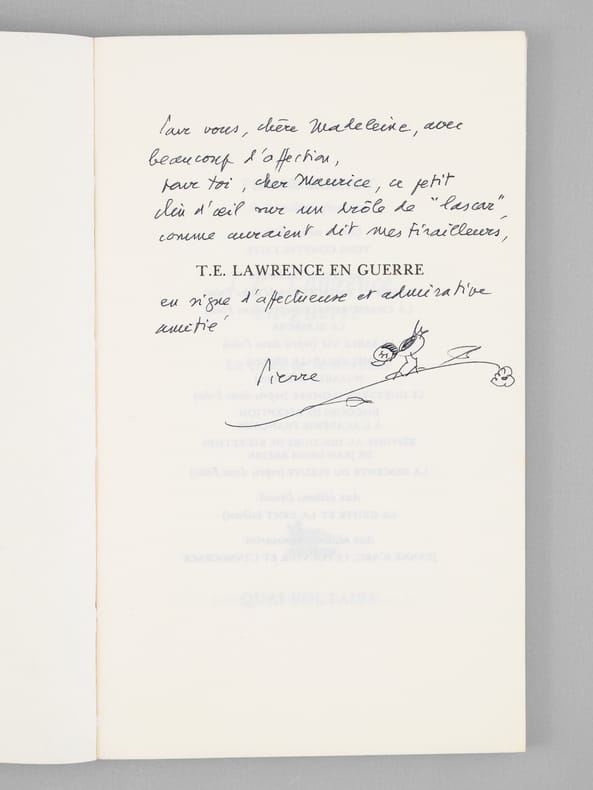 Pour vous, chère Madeleine, avec
beaucoup d'affection,
pour toi, cher Maurice, ce petit
clin d'œil sur un drôle de "lascar",
comme auraient dit mes tirailleurs,
T.E. LAWRENCE EN GUERRE
en signe d'affectueuse et admirative
amitié
Pierre